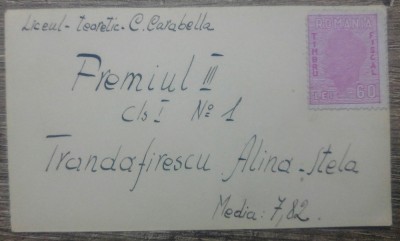 Liceul - teoretic - C. Carabella
Premiul III
cls I № 1
Trandafirescu Alina-Stela
Media: 7,82.
ROMANIA
TIMBRU
FISCAL
LEI
60